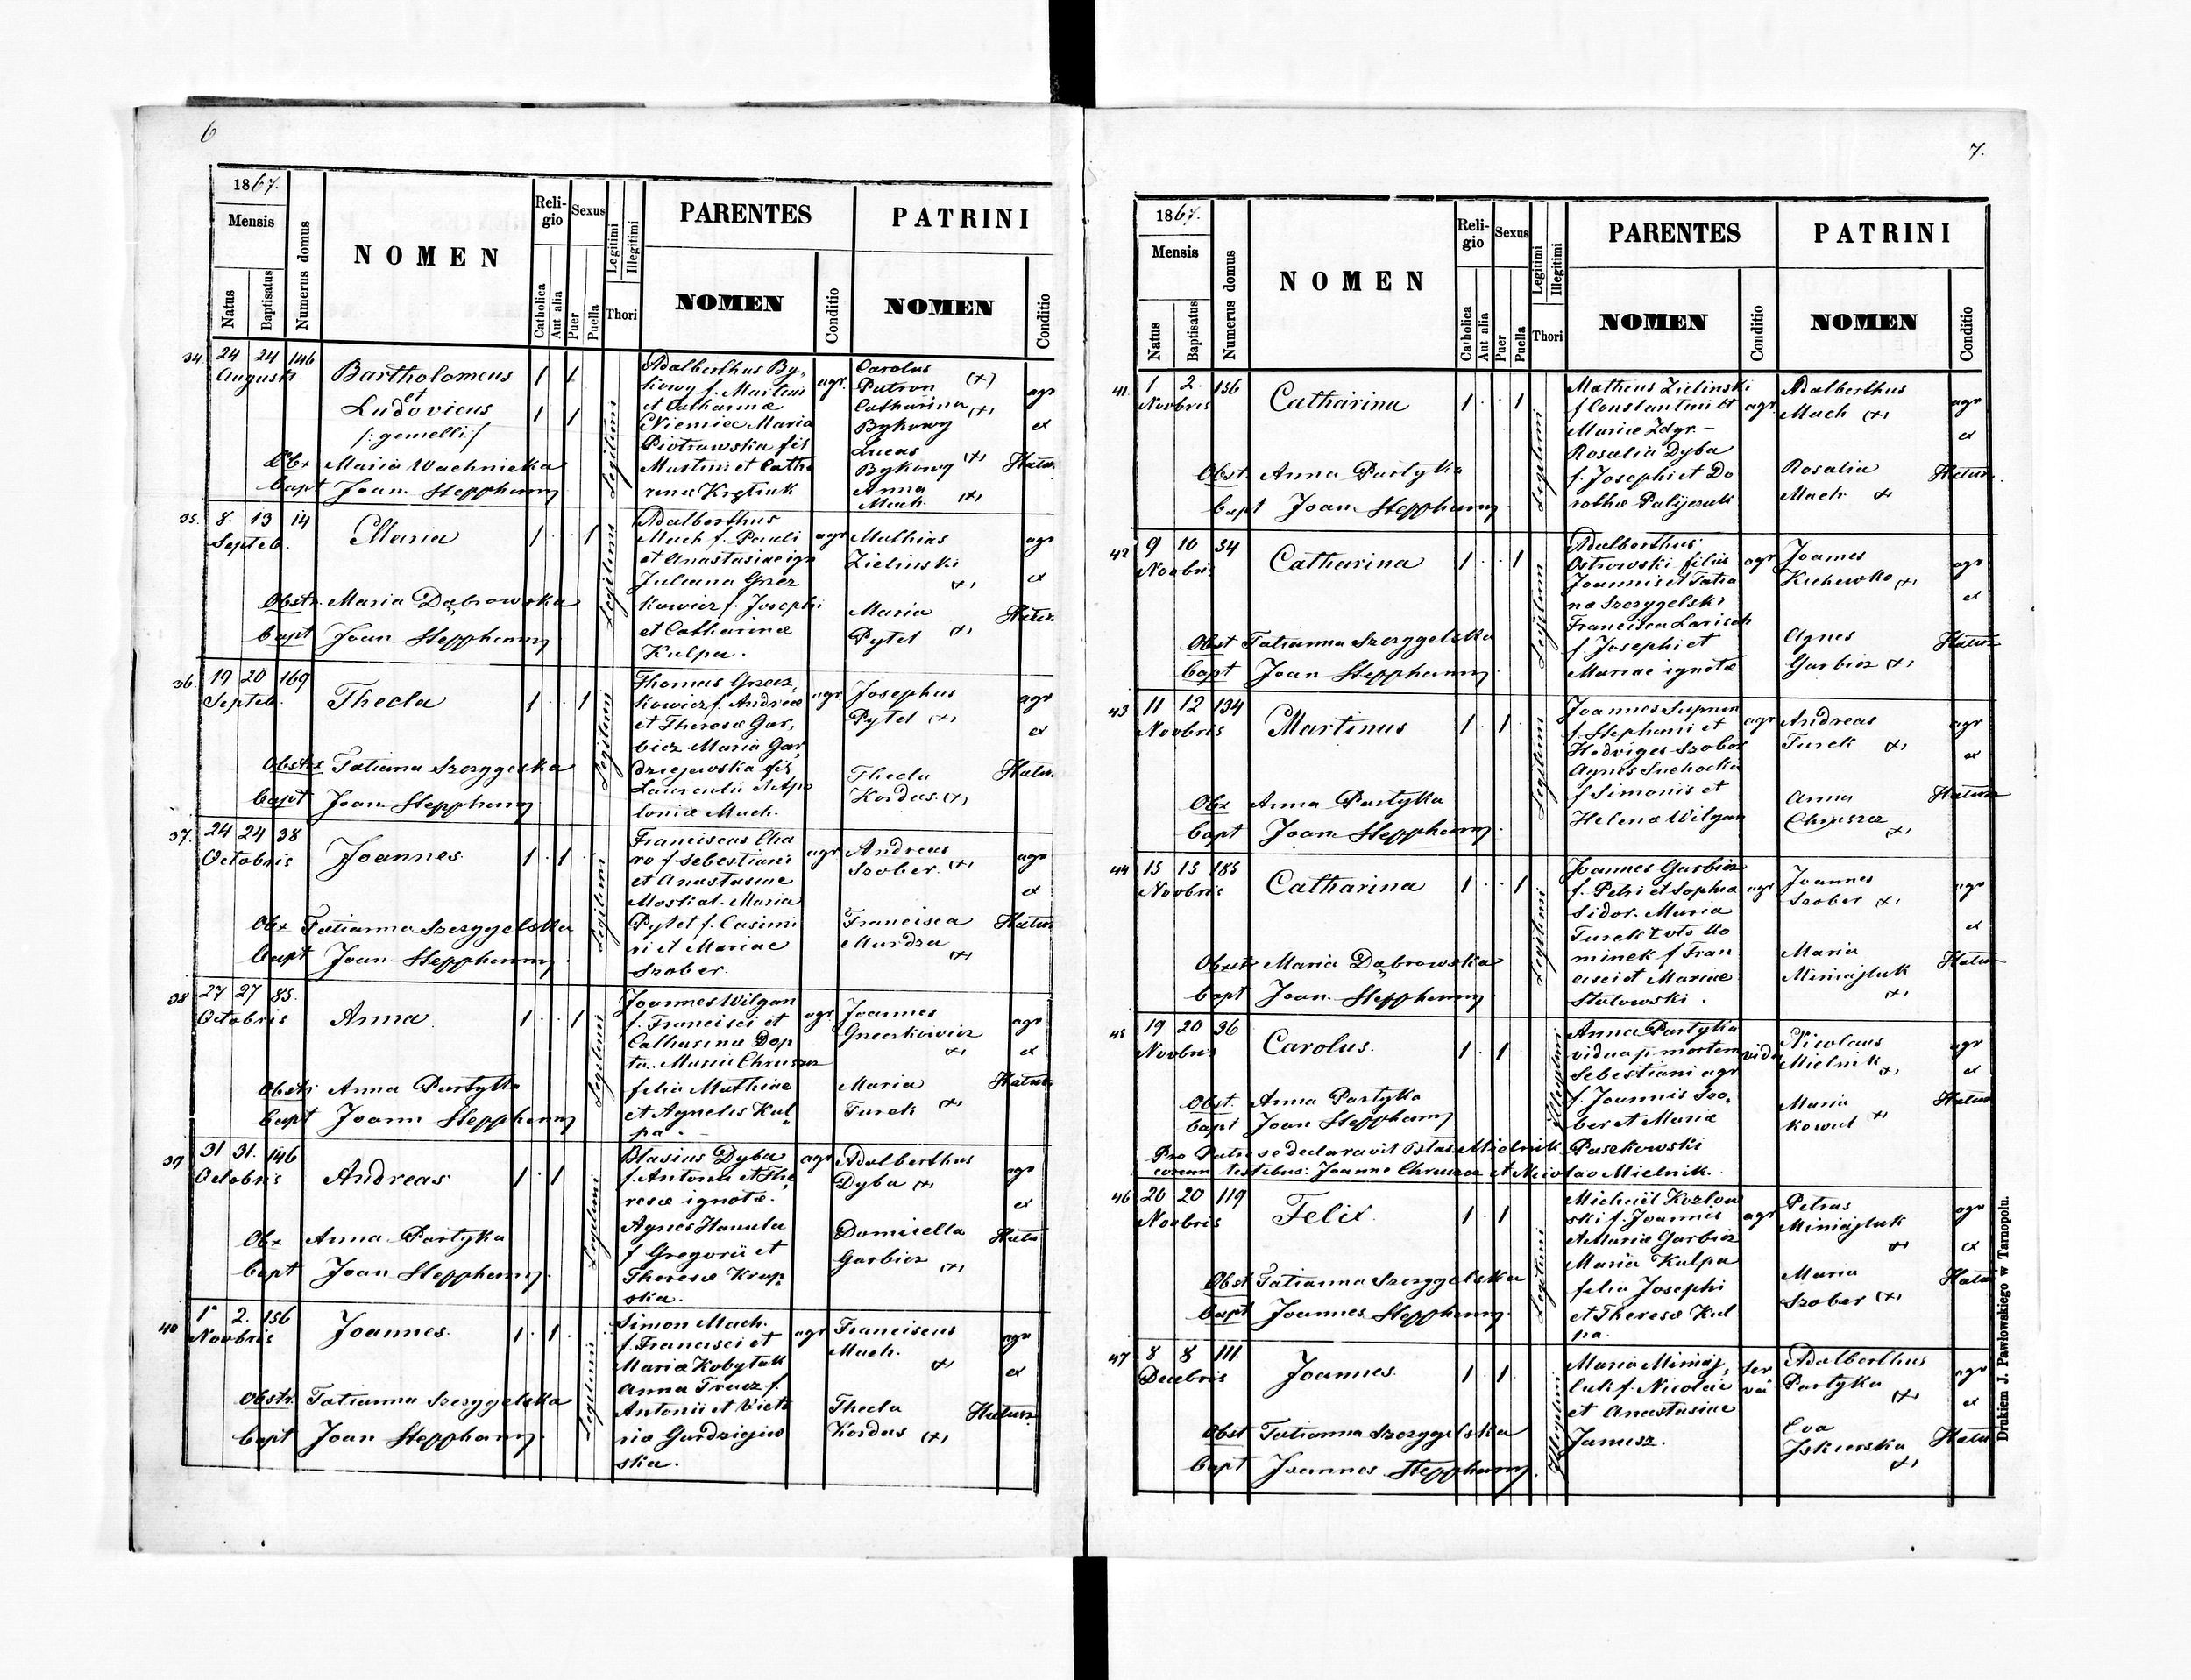 6
1867.
Mensis
Natus
Baptisatus
Numerus domus
NOMEN
Religio
Catholica
Aut alia
Sexus
Puer
Puella
Legitimi
Illegitimi
Thori
PARENTES
NOMEN
Conditio
PATRINI
NOMEN
Conditio
34. 24 24 146
Augusti
Bartholomeus
et
Ludovicus
/: gemelli /
Obx Maria Wachnicka
bapt Joan Stepphanny
1 1
1 1
Legitimi
Adalberthus By-
kowy f. Martini
et Catharinae
Niemiec Maria
Piotrowska fis
Martini et Catha
rina
agr.
Carolus
Patron (+)
Catharina (+)
Bykowy
Lucas
Bykowy (+)
Anna
Mach (+)
agr
et
Hatus
35. 8. 13 14
Septeb.
Maria
Obstr. Maria Dąbrowska
bapt Joan Stepphanny
1 1
Legitimi
Adalberthus
Mach f. Pauli
et Anastasiae ign
Juliana Grzez
kowicz f. Josephi
et Catharinae
Kulpa.
agr
Mathias
Zielinski
(+)
Maria
Pytel (+)
agr
et
Hatus
36. 19 20 169
Septeb.
Thecla
Obstx Tatiana Szczygelska
bapt Joan Stepphanny
1 1
Legitimi
Thomas Grzez
kowicz f. Andreae
et Theresae Gar-
bicz Maria Gar
dziejewska fis
Laurentii et Apo
loniae Mach.
agr.
Josephus
Pytel (+)
Thecla
Kordas (+)
agr
et
Hatus
37. 24 24 38
Octobris
Joannes
Obx Tatianna Szczygelska
bapt Joan Stepphanny
1 1
Legitimi
Franciscus Cha
ro f. Sebestiani
et Anastasiae
Moskal. Maria
Pytel f. Casimi
ri et Mariae
Szober.
agr
Andreas
Szober (+)
Francisca
Murdza
(+)
agr
et
Hatus
38 27 27 85.
Octobris
Anna
Obstx Anna Partyka
bapt Joann Stepphanny
1 1
Legitimi
Joannes Wilgan
f. Francisci et
Catharinae Dop
ta. Maria Chruszcz
filia Mathiae
et Agnetis Kul
pa.
agr
Joannes
Grzeskowicz
(+)
Maria
Turek (+)
agr
et
Hatus
39 31 31. 146
Octobris
Andreas
Obx Anna Partyka
bapt Joan Stepphanny
1 1
Legitimi
Blasius Dyba
f. Antonii et The
resae ignotae.
Agnes Hanula
f Gregorii et
Theresae Krup
ska.
agr
Adalberthus
Dyba (+)
Domicella
Garbicz
(+)
agr
et
Hatus
40 1 2. 156
Novbris
Joannes
Obstr. Tatianna Szczygelska
bapt Joan Stepphanny
1 1
Legitimi
Simon Mach.
f. Francisci et
Mariae Kobytak
Anna Tracz f.
Antonii et Victo
riae Gardziejew
ska.
agr
Franciscus
Mach.
(+)
Thecla
Kordas (+)
agr
et
Hatus
7.
1867.
Mensis
Natus
Baptisatus
Numerus domus
NOMEN
Religio
Catholica
Aut alia
Sexus
Puer
Puella
Legitimi
Illegitimi
Thori
PARENTES
NOMEN
Conditio
PATRINI
NOMEN
Conditio
41. 1. 2. 156
Novbris
Catharina
Obst. Anna Partyka
bapt Joan Stepphanny
1 1
Legitimi
Matheus Zielinski
f Constantini et
Mariae Zdgr. -
Rosalia Dyba
f. Josephi et Do
rothae
agr
Adalberthus
Mach (+)
Rosalia
Mach (+)
agr
et
Hatus
42 9 10 54
Novbris
Catharina
Obst Tatianna Szczygelska
bapt Joan Stepphanny
1 1
Legitimi
Adalberthus
Ostrowski filius
Joannis et Tatia
nae Szczygelski
Francisca Larisch
f. Josephi et
Mariae ignotae
agr
Joannes
Kuchewko (+)
Agnes
Garbicz (+)
agr
et
Hatus
43 11 12 134
Novbris
Martinus
Obx Anna Partyka
bapt Joan Stepphanny
1 1
Legitimi
Joannes Supron
f. Stephani et
Hedviges Szober
Agnes Suchocka
f Simonis et
Helenae Wilgan
agr
Andreas
Turek (+)
Anna
Chruszcz
(+)
agr
et
Hatus
44 15 15 185
Novbris
Catharina
Obxtr Maria Dąbrowska
bapt Joan Stepphanny
1 1
Legitimi
Joannes Garbicz
f. Petri et Sophia
Sidor. Maria
Turek I voto Ko
minek f Fran
cisci et Mariae
Stalowski.
agr
Joannes
Szober (+)
Maria
Miniajluk
(+)
agr
et
Hatus
45 19 20 36
Novbris
Carolus.
Obst. Anna Partyka
bapt Joan Stepphanny
1 1
Illegitimi
Anna Partyka
vidua p. mortem
Sebestiani agr
f. Joannis Szo-
ber et Maria
Paszkowski
vidu
Nicolaus
Mielnik
(+)
Maria
Kowal (+)
agr
et
Hatus
Pro Patre se declaravit Blas. Mielnik
coram testibus: Joanne Chruszcz et Nicolao Mielnik.
46 20 20 119
Novbris
Felix.
Obst Tatianna Szczygelska
bapt Joannes Stepphanny
1 1
Legitimi
Michaël Kozlow
ski f. Joannis
et Maria Garbicz
Maria Kulpa
filia Josephi
et Theresae Kul
pa.
agr
Petrus
Miniajluk
(+)
Maria
Szober (+)
agr
et
Hatus
47 8 8 111.
Decebris
Joannes.
Obst Tatianna Szczygelska
bapt Joannes Stepphanny
1 1
Illegitimi
Maria Miniaj
luk f. Nicolai
et Anastasiae
Janusz.
ser
va
Adalberthus
Partyka
(+)
Eva
Iskierska
(+)
agr
et
Hatus
Drukiem J. Pawłowskiego w Tarnopolu.